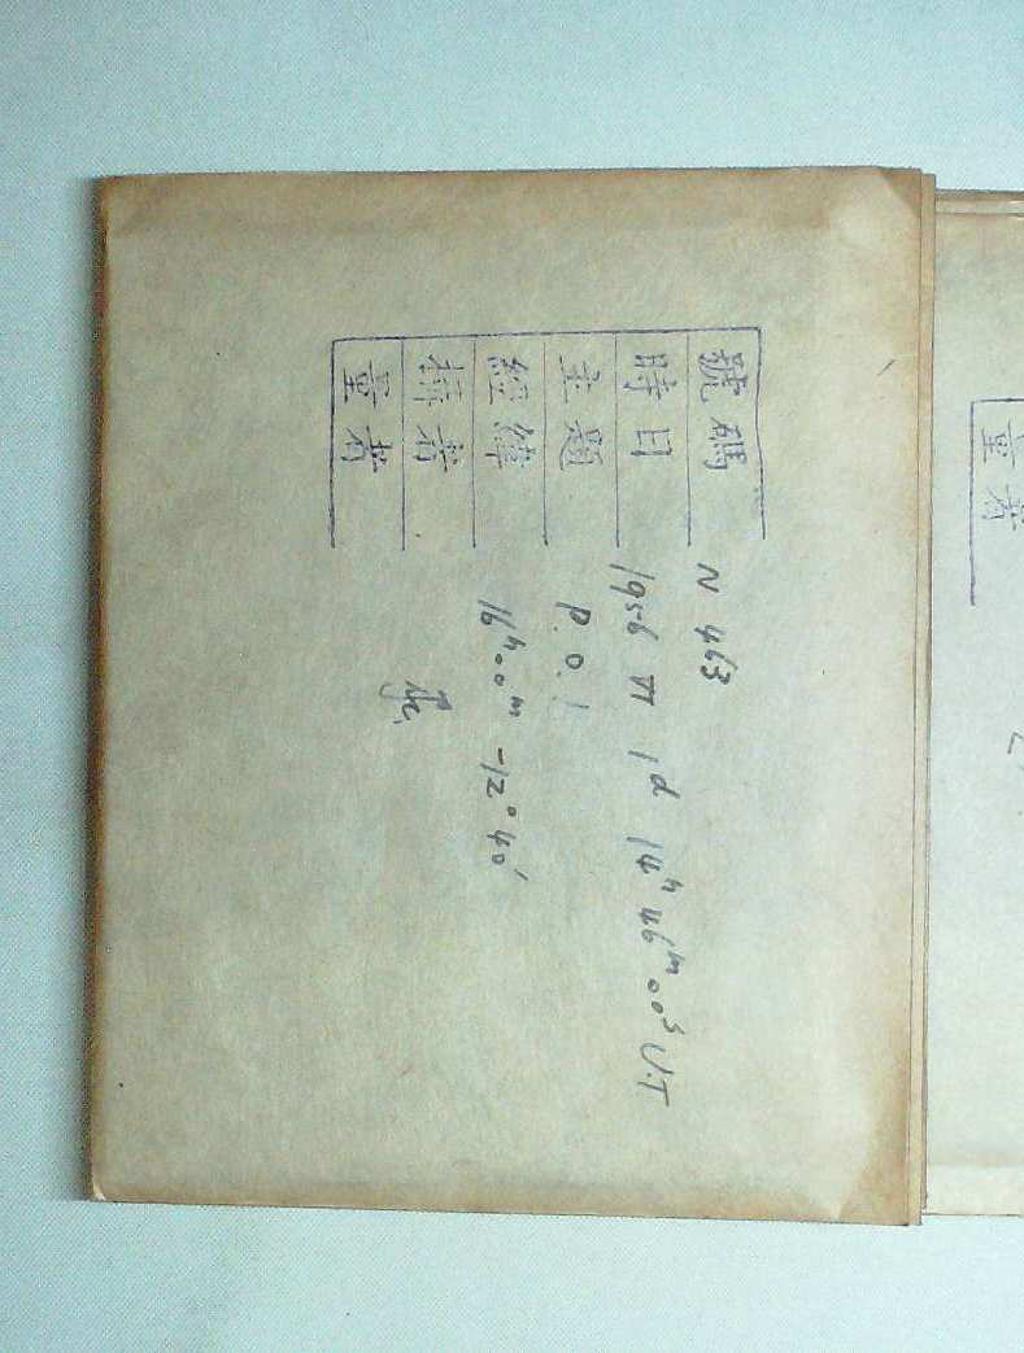 號碼 N 463
時日 1956 VI 1d 14h 46m 00s U.T
主題 P. O.
經緯 16h 00m -12° 40'
攝者
量者
量者